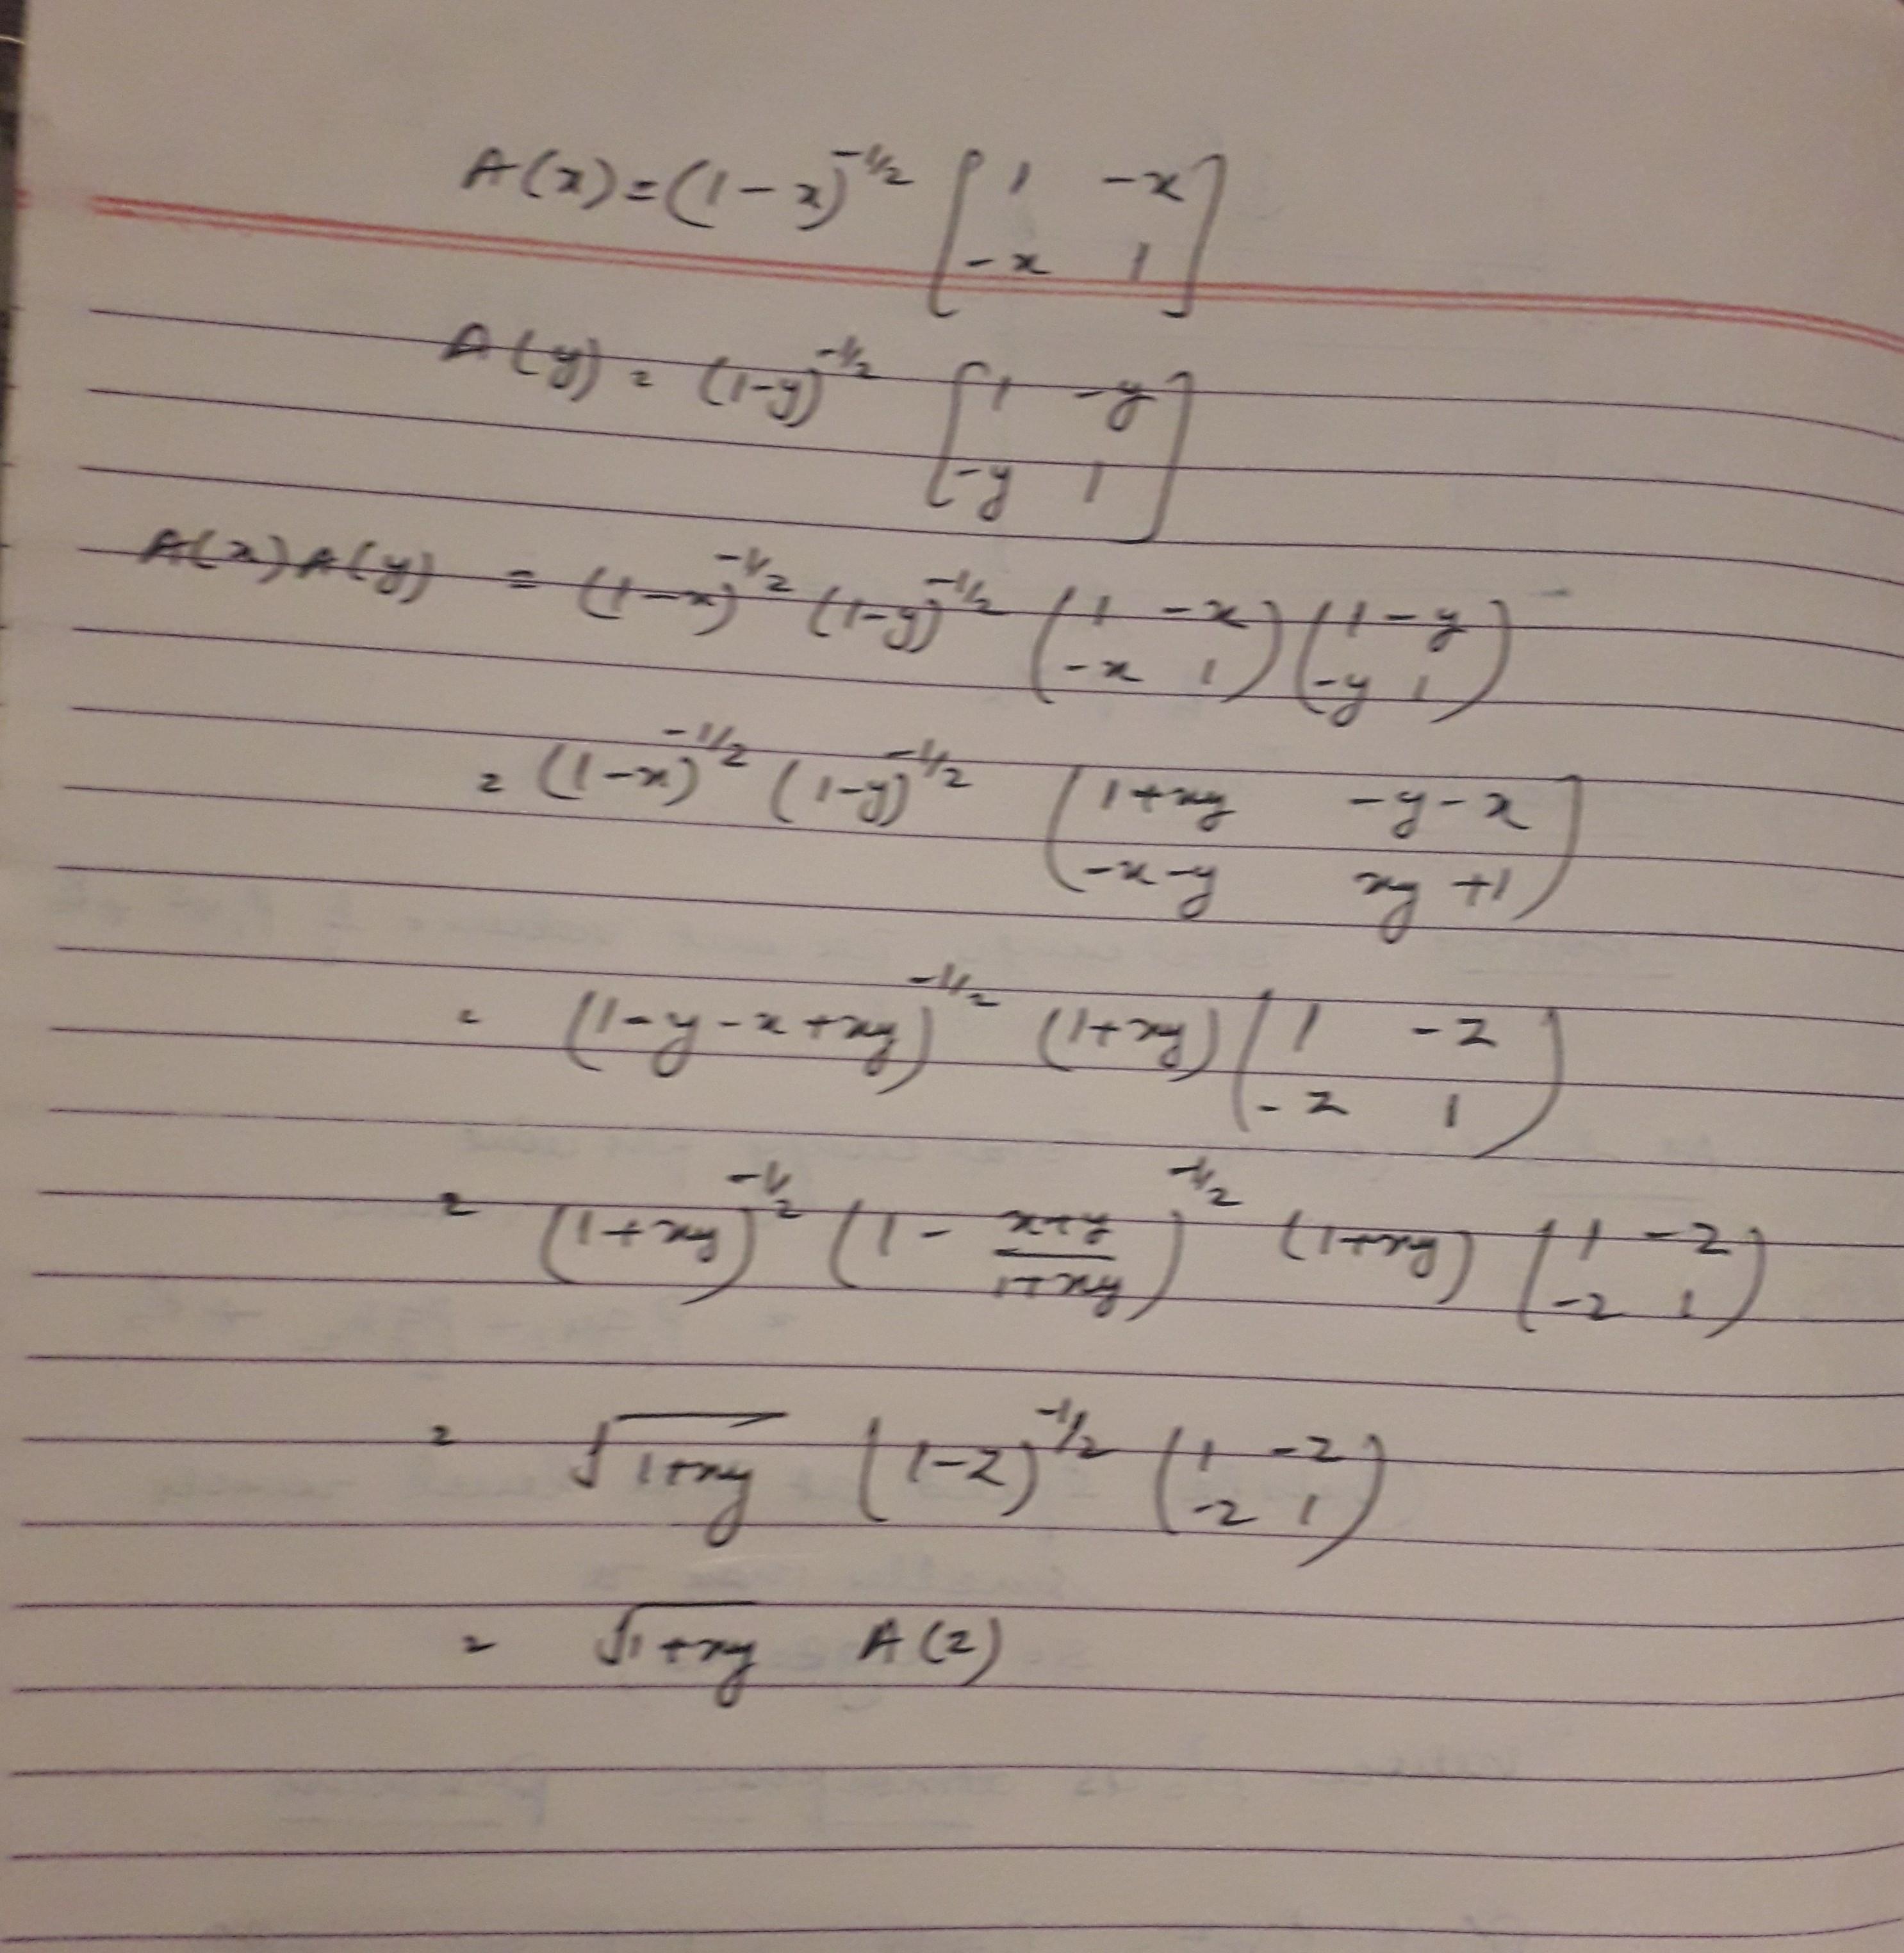 A(x) = (1-x)^{-1/2} [1 -x
-x 1]
A(y) = (1-y)^{-1/2} [1 -y
-y 1]
A(x)A(y) = (1-x)^{-1/2} (1-y)^{-1/2} (1 -x
-x 1) (1 -y
-y 1)
= (1-x)^{-1/2} (1-y)^{-1/2} (1+xy -y-x
-x-y xy+1)
= (1-y-x+xy)^{-1/2} (1+xy) (1 -z
-z 1)
= (1+xy)^{-1/2} (1 - \frac{x+y}{1+xy})^{-1/2} (1+xy) (1 -z
-z 1)
= √(1+xy) (1-z)^{-1/2} (1 -z
-z 1)
= √(1+xy) A(z)